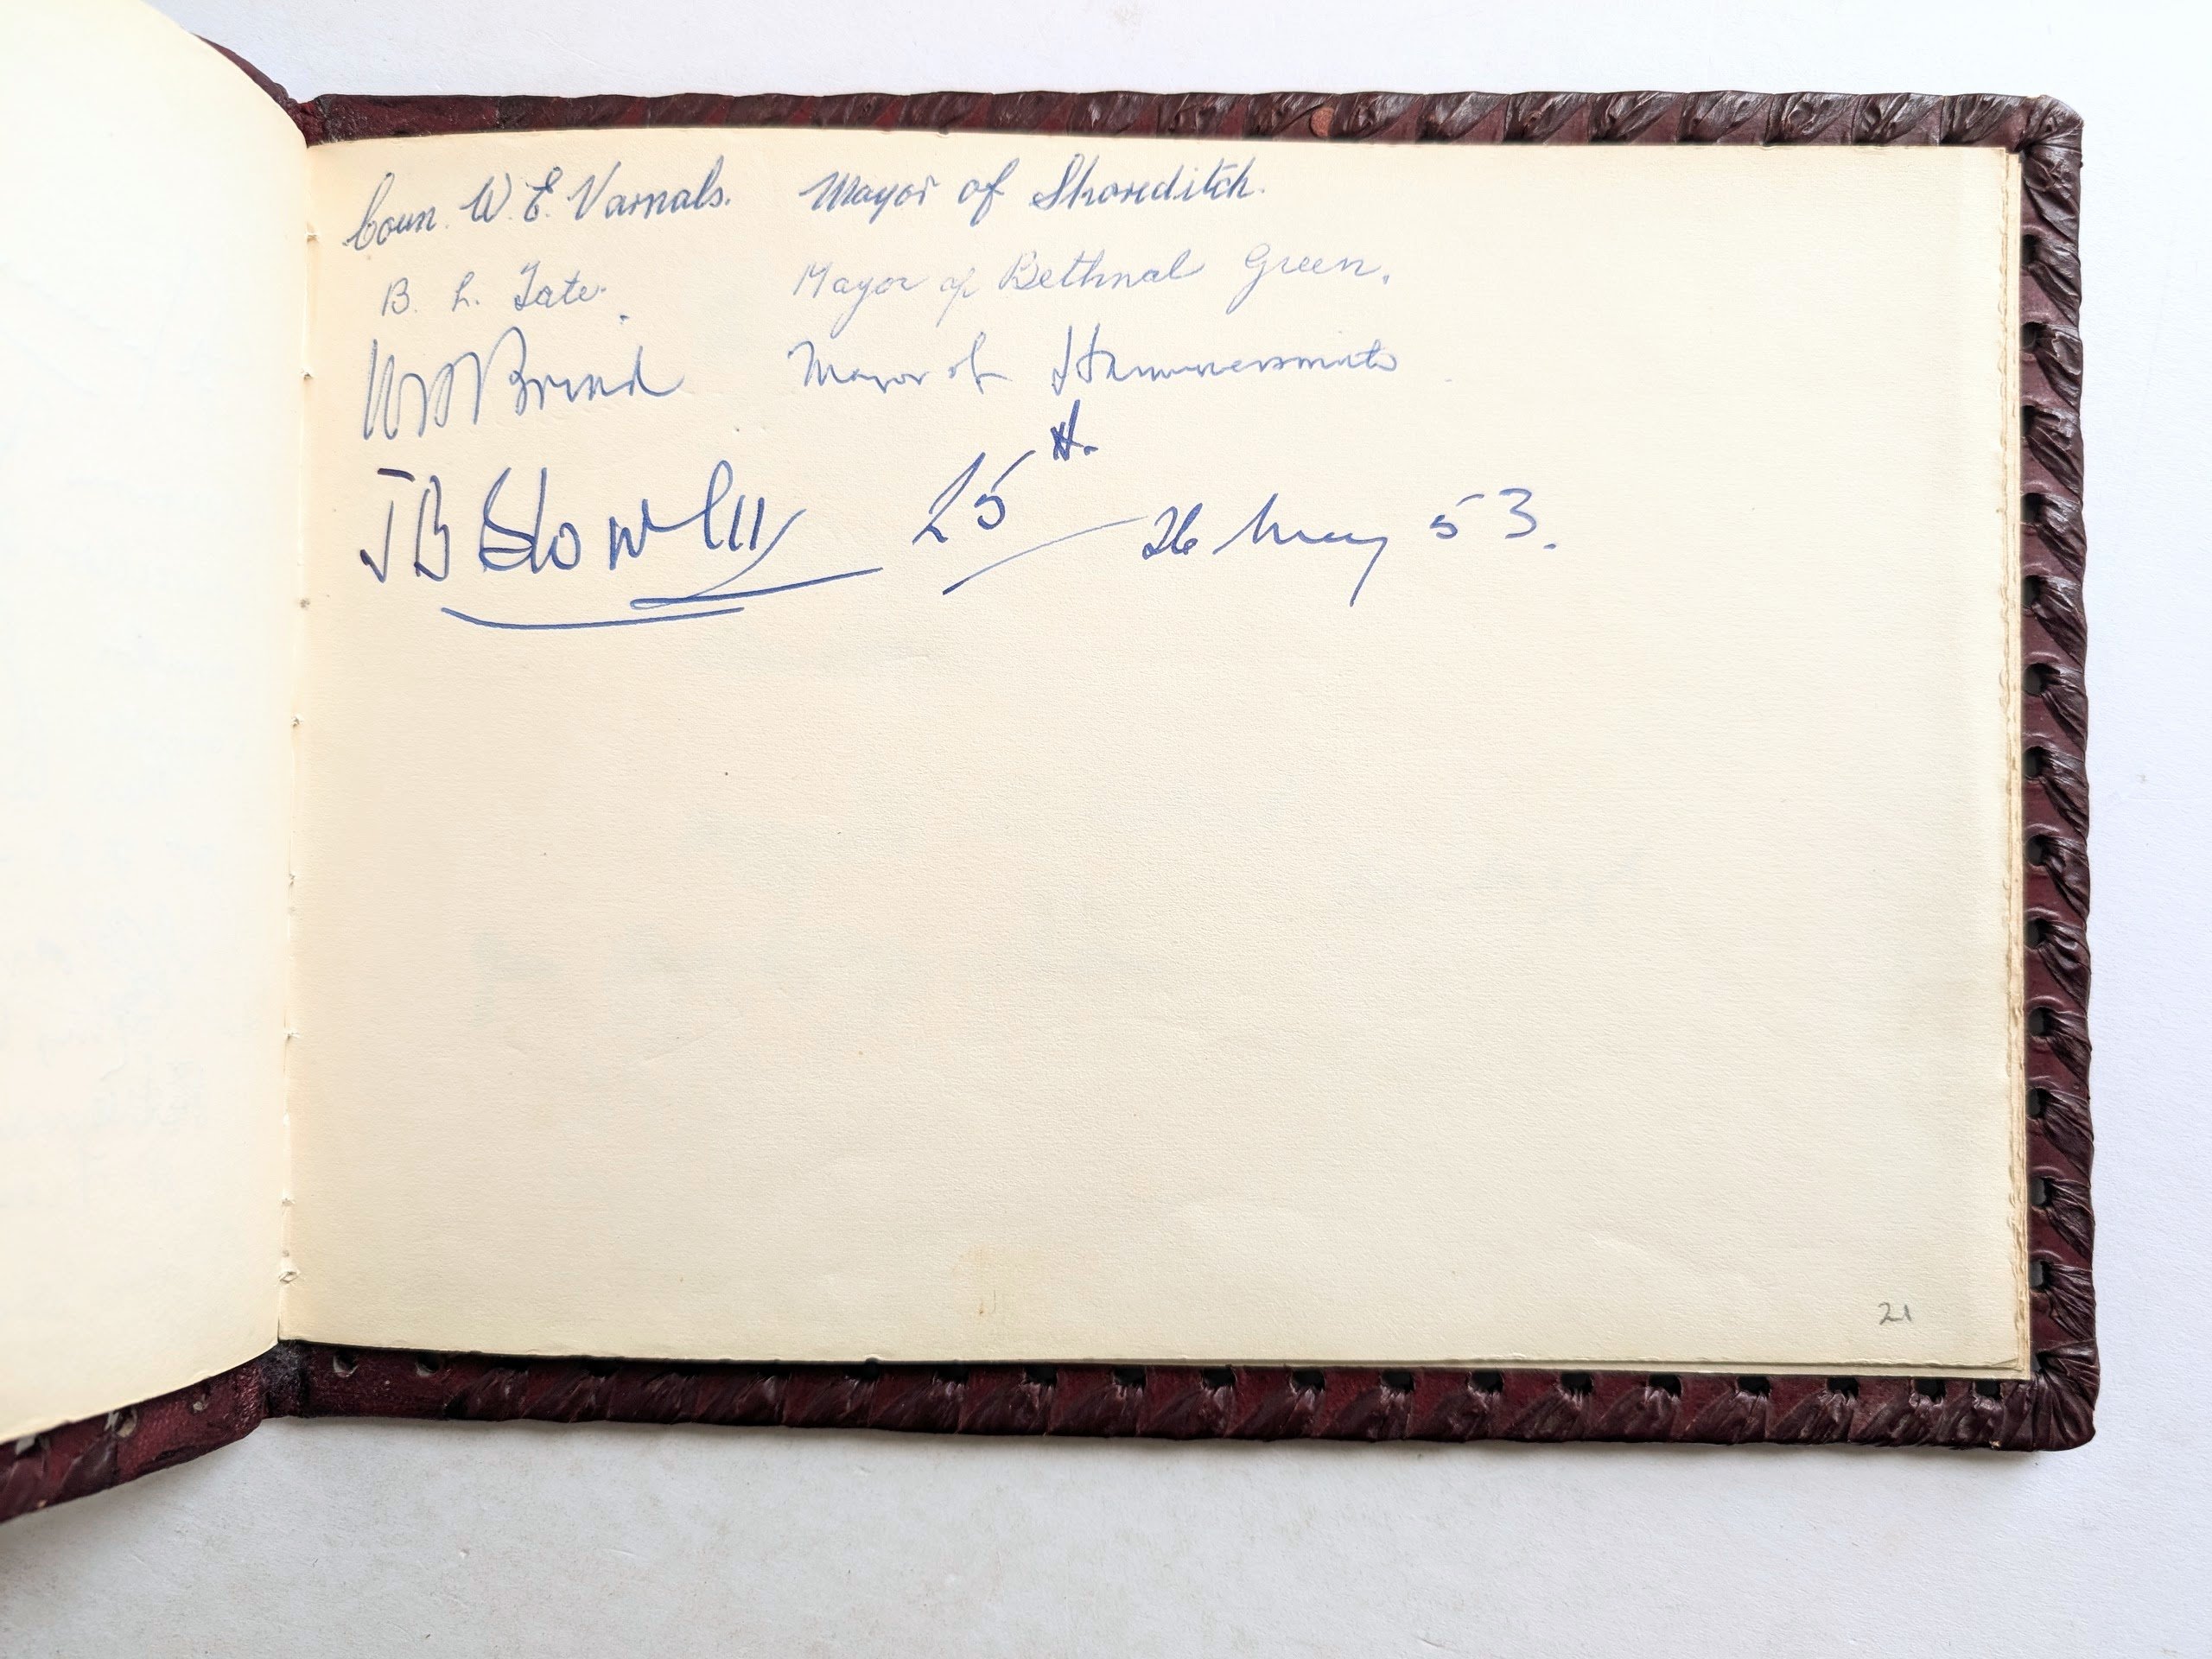 Coun. W. E. Varnals. Mayor of Shoreditch.
B. L. Tate. Mayor of Bethnal Green.
Brind Mayor of Hammersmith
J B 25th. 26 May 53.
21